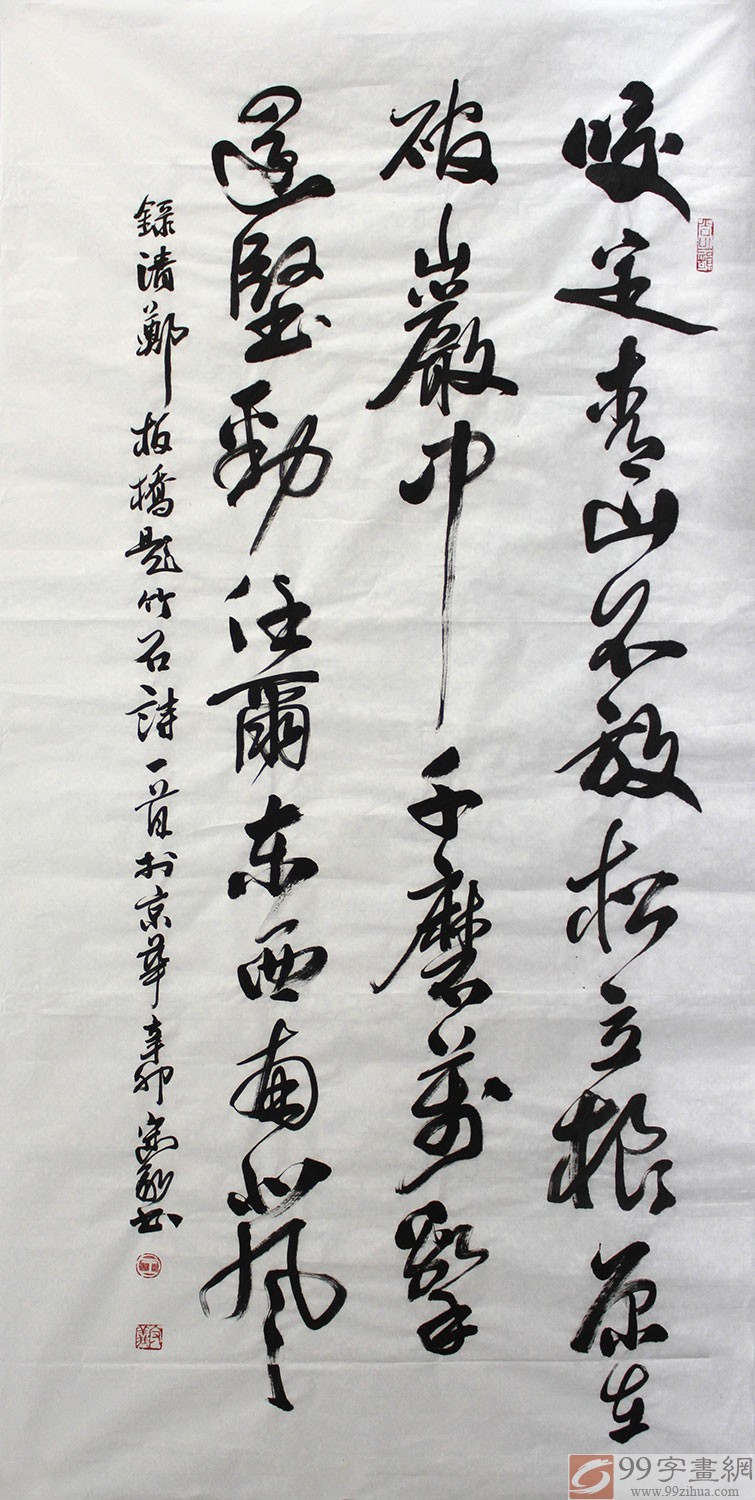 咬定青山不放松立根原在
破巖中千磨萬擊
還堅勁任爾东西南北风
錄清鄭板橋題竹石詩一首於京華辛卯书
99字畫網
www.99zihua.com